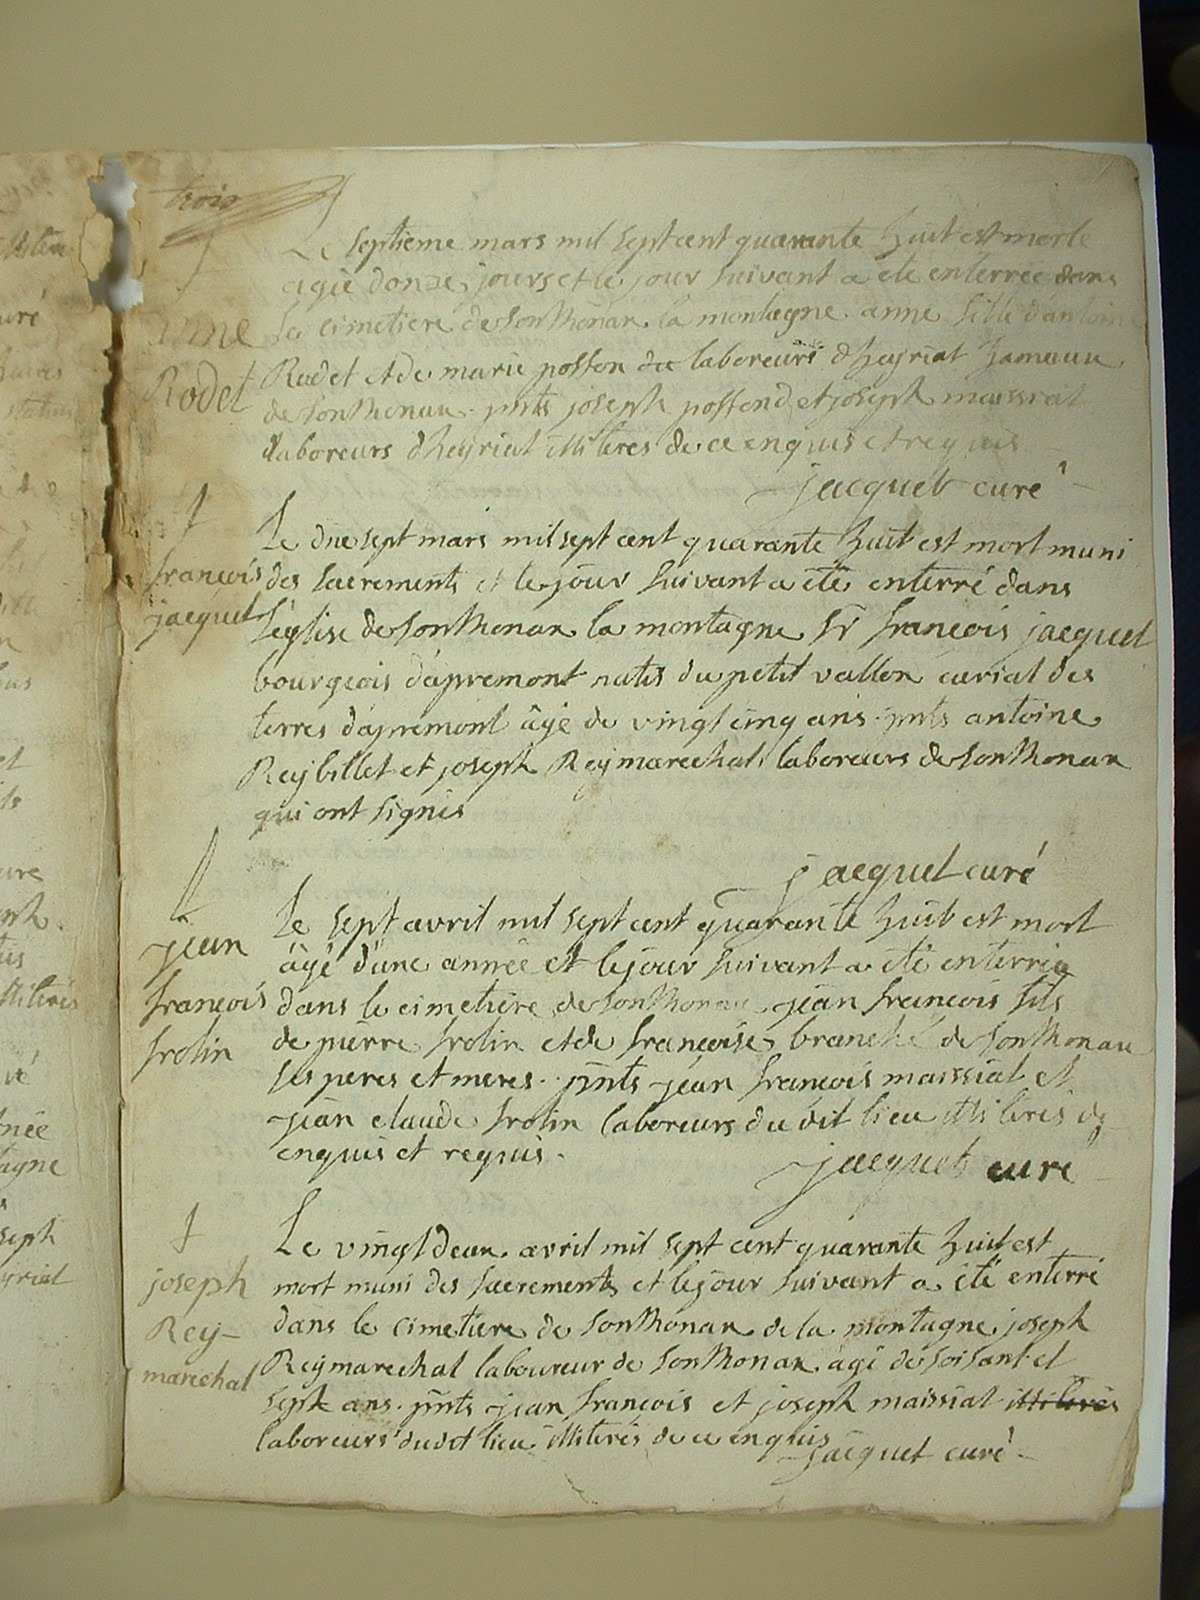 trois
Le septieme mars mil sept cent quarante huit est morte
agié donze jours et le jour suivant a eté enterrée dans
anne
Le cimetiere de Sonthonax la montagne anne fille d'antoine
Rodet
Rodet et de marie posson due laboreurs d'heyriat hameau
de Sonthonax. pnts joseph possond et joseph maissiat
laboreurs d'heyriat illiteres de ce enquis et requis
jacquet curé
françois
jacquet
Le dixesept mars mil sept cent quarante huit est mort muni
des sacrements et le jour suivant a eté enterré dans
l'église de Sonthonax la montagne Sr françois jacquet
bourgeois d'apremont natif du petit vallon curial des
terres d'apremont âgé de vingt cinq ans. pnts antoine
Reybillet et joseph Reymarechal laboreurs de Sonthonax
qui ont signés
jacquet curé
jean
françois
frolin
Le sept avril mil sept cent quarante huit est mort
âgé d'une année et le jour suivant a eté enterrée
dans le cimetiere de Sonthonax jean françois fils
de pierre frolin et de françoise branché de Sonthonax
ses peres et meres. pnts jean françois maissiat et
jean claude frolin laboreurs du dit lieu illiterés
enquis et requis.
jacquet curé
joseph
Rey-
marechal
Le vingt deux avril mil sept cent quarante huit est
mort muni des sacrements et le jour suivant a été enterré
dans le cimetiere de Sonthonax de la montagne joseph
Reymarechal laboureur de Sonthonax âgé de soisant et
sept ans. pnts jean françois et joseph maissiat illiterés
laboreurs du dit lieu illiterés de ce enquis
jacquet curé